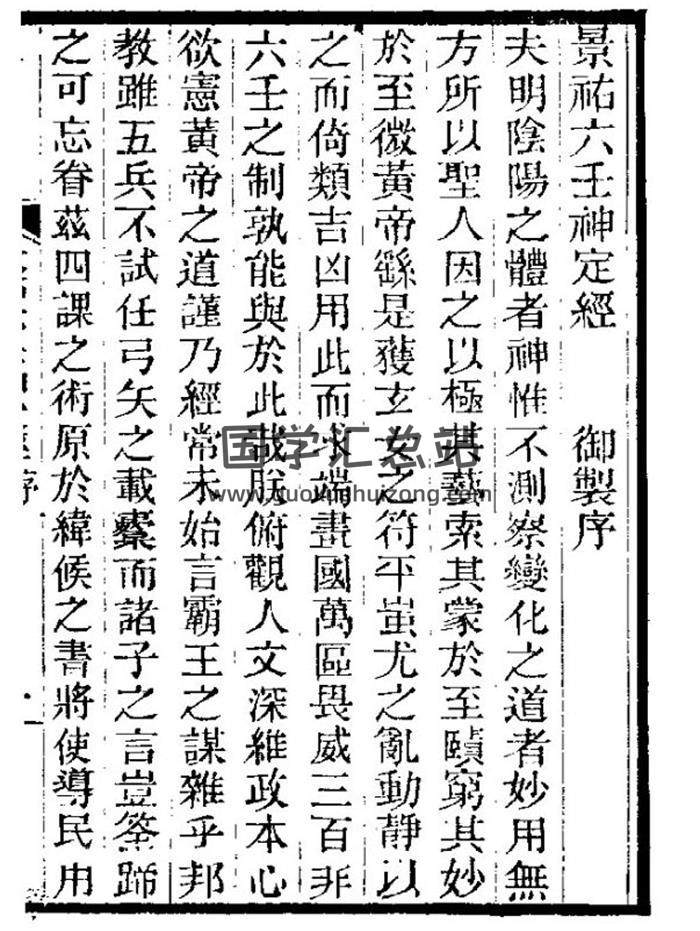 景祐六壬神定經 御製序
夫明陰陽之體者神惟不測察變化之道者妙用無
方所以聖人因之以極其藝索其蒙於至賾窮其妙
於至微黃帝繇是獲玄女之符平蚩尤之亂動靜以
之而倚類吉凶用此而求端畫國萬區畏威三百非
六壬之制孰能與於此哉朕俯觀人文深維政本心
欲憲黃帝之道謹乃經常未始言霸王之謀雜乎邦
教雖五兵不試任弓矢之載櫜而諸子之言豈筌蹄
之可忘眷茲四課之術原於緯候之書將使導民用
國学汇总站
www.guoxuehuizong.com